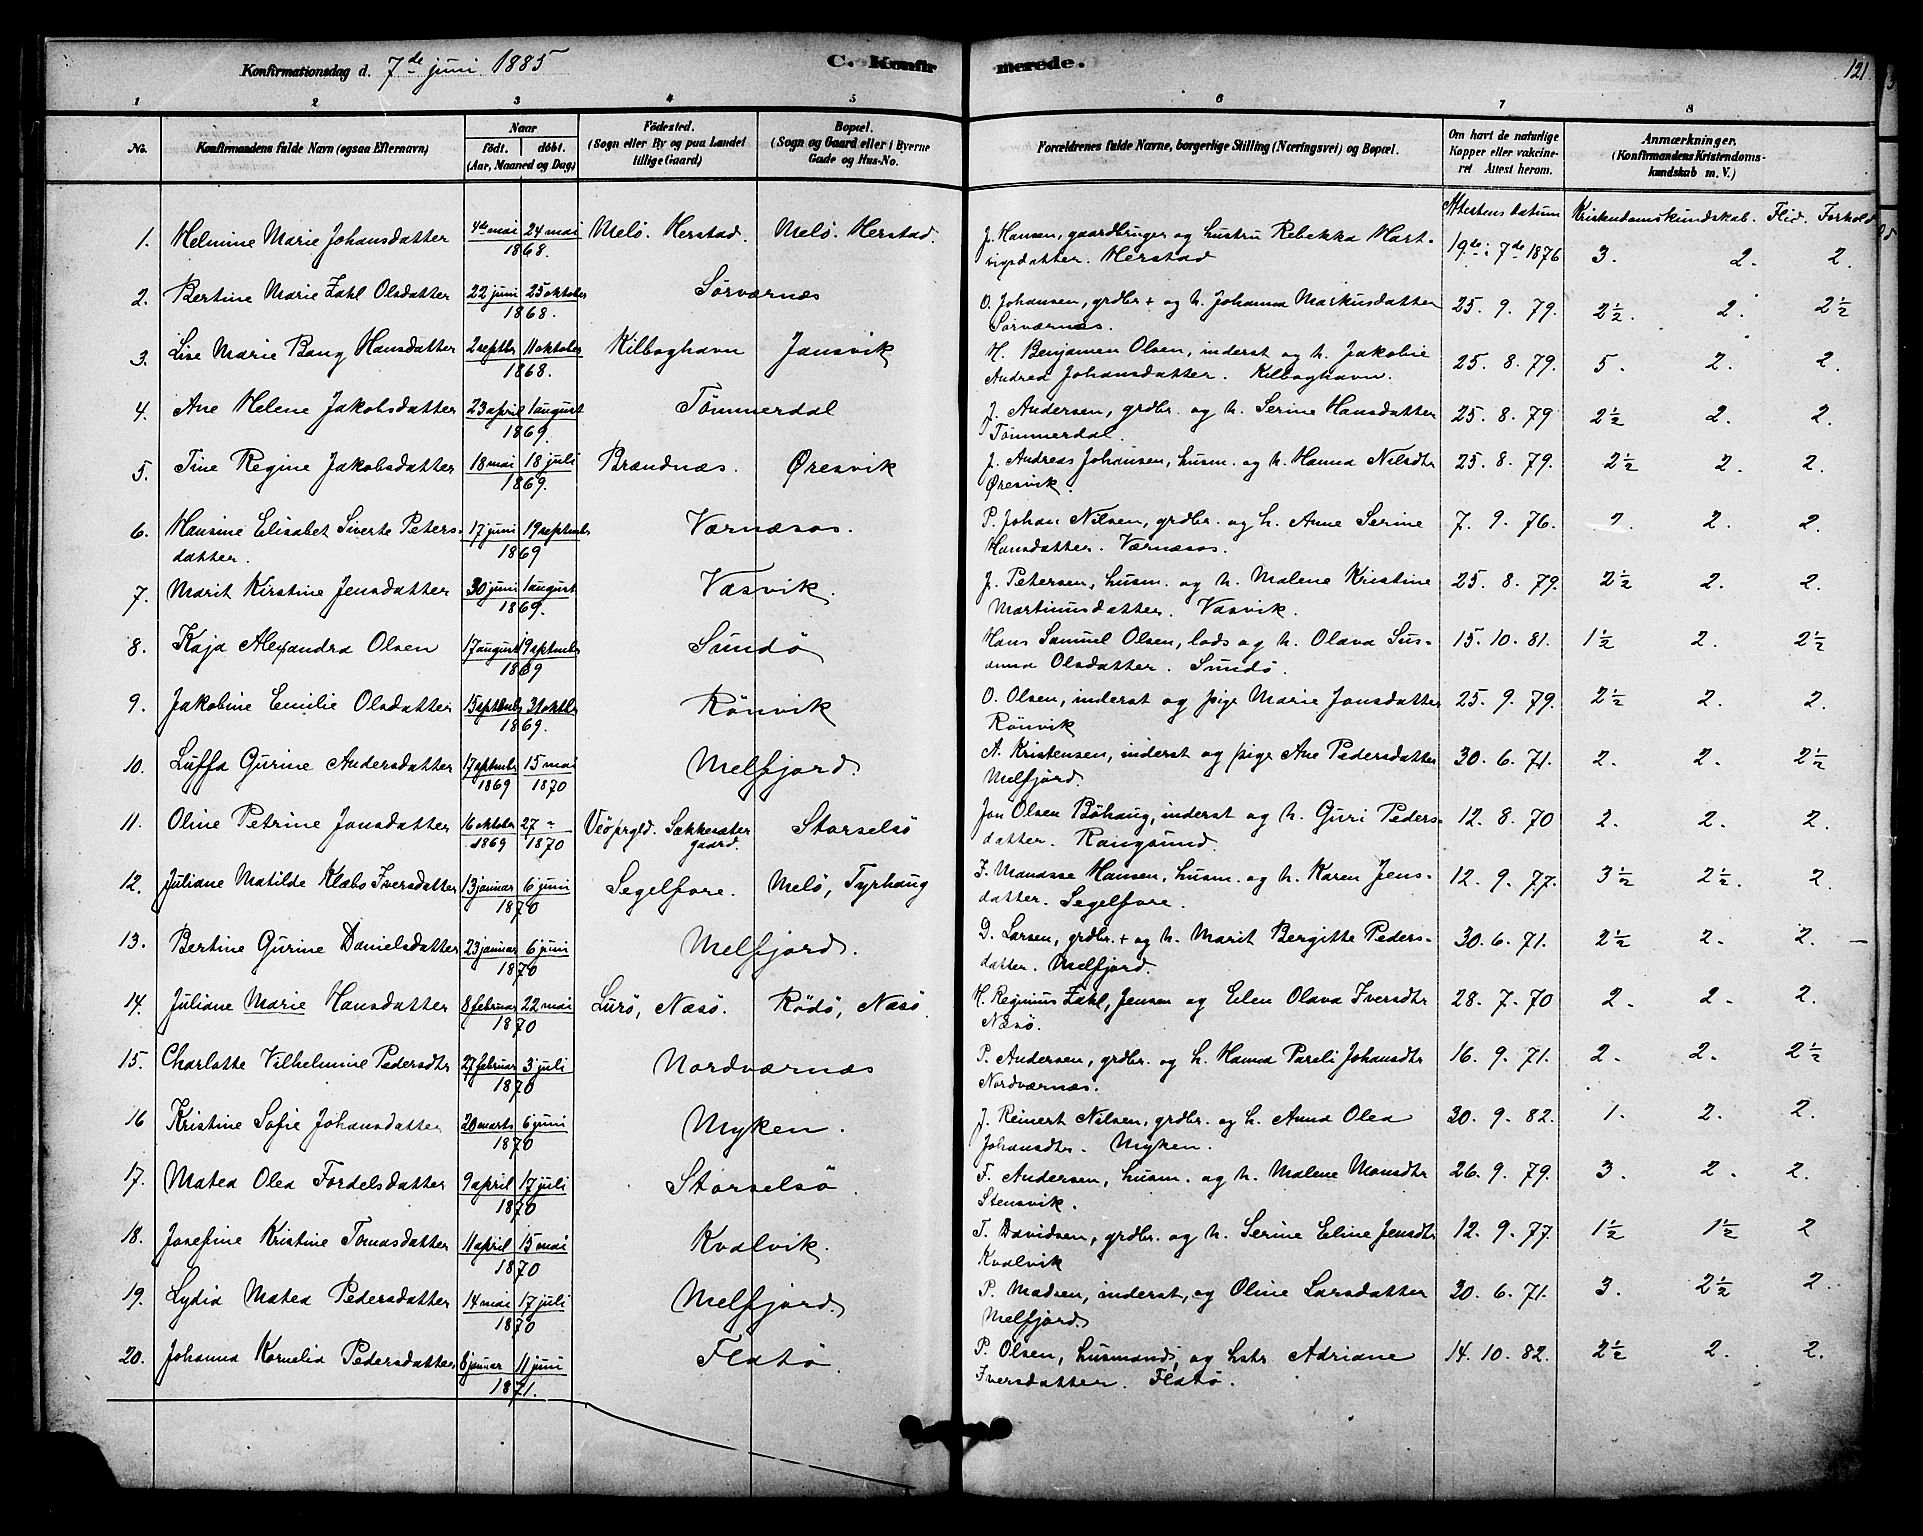 Konfirmationsdag d. 7de juni 1885
C. Konfirmerede.
121.
1 2 3 4 5 6 7 8
No.
Konfirmandens fulde Navn (ogsaa Efternavn)
Naar
født. døbt.
(Aar, Maaned og Dag)
Fødested.
(Sogn eller By og paa Landet
tillige Gaard)
Bopæl.
(Sogn og Gaard eller i Byerne
Gade og Hus-No.
Forældrenes fulde Navne, borgerlige Stilling (Næringsvei) og Bopæl.
Om havt de naturlige
Kopper eller vakcine-
ret Attest herom.
Anmærkninger,
(Konfirmandens Kristendoms-
kundskab m. V.)
Attestens datum Kristendomskundskab. Flid. Forhold
1. Helmine Marie Johansdatter 4de mai 24 mai Melö. Herstad. Melö. Herstad. J. Hansen, gaardbruger og hustru Rebekka Hart- 19de: 7de 1876 3. 2. 2.
1868. vigsdatter. Herstad
2. Bertine Marie Zahl Olsdatter 22 juni 25 oktober Sörværnæs O. Johansen, grdbr + og h. Johanna Markusdatter 25. 9. 79. 2½. 2. 2½
1868. Sörværnæs.
3. Lise Marie Bang Hansdatter 2 septbr 11 oktober Kilboghavn Jansvik H. Benjamen Olsen, inderst og h. Jakobie 25. 8. 79. 5. 2. 2.
1868. Andrea Johansdatter. Kilboghavn.
4. Ane Helene Jakobsdatter 23 april 1 august Tömmerdal J. Andersen, grdbr. og h. Serine Hansdatter 25. 8. 79 2½ 2. 2.
1869. Tömmerdal.
5. Tine Regine Jakobsdatter 18 mai 18 juli Brændnæs. Øresvik J. Andreas Johansen, husm. og h. Hanna Nilsdtr 25. 8. 79. 2½ 2. 2.
1869. Øresvik.
6. Hansine Elisabet Siverte Peters- 17 juni 19 september Værnæsos. P. Johan Nilsen, grdbr. og h. Anne Serine 7. 9. 76. 2. 2.
datter. 1869 Hansdatter. Værnæsos.
7. Marit Kirstine Jensdatter 30 juni 1 august Vasvik. J. Petersen, husm. og h. Malene Kristine 25. 8. 79. 2½ 2. 2.
1869. Martinusdatter. Vasvik.
8. Kaja Alexandra Olsen 17 august 19 september Sundö Hans Samuel Olsen, lods og h. Olava Sus- 15. 10. 81. 1½ 2. 2½
1869 anna Olsdatter. Sundö.
9. Jakobine Emilie Olsdatter 15 septembr 31 oktbr Rönvik O. Olsen, inderst og pige Marie Jonsdatter 25. 9. 79. 2½ 2. 2.
1869. Rönvik
10. Luffa Gurine Andersdatter 17 septembr 15 mai Melfjord. A. Kristensen, inderst og pige Ane Pedersdatter 30. 6. 71. 2. 2. 2½
1869 1870 Melfjord.
11. Oline Petrine Jonsdatter 16 oktober 27 Veöprgld. Sækkesæter Storselsö Jon Olsen Böhaug, inderst og h. Guri Peders- 12. 8. 70 2. 2. 2.
1869 1870 gaard. datter. Rangsund.
12. Juliane Matilde Klæbo Iversdatter 13 januar 6 juni Segelfore. Melö, Tyrhaug I. Manasse Hansen, husm. og h. Karen Jens- 12. 9. 77. 3½ 2½. 2.
1870 datter. Segelfore.
13. Bertine Gurine Danielsdatter 23 januar 6 juni Melfjord. D. Larsen, grdbr. + og h. Marit Bergitte Peders- 30. 6. 71. 2½ 2. 2. –
1870 datter. Melfjord.
14. Juliane Marie Hansdatter 8 februar 22 mai Lurö, Næsö. Rödö, Næsö. H. Reginius Zahl, Jensen og Elen Olava Iversdtr 28. 7. 70 2. 2. 2.
1870 Næsö.
15. Charlotte Vilhelmine Pedersdtr 27 februar 3 juli Nordværnæs P. Andersen, grdbr. og h. Hanna Pareli Johansdtr 16. 9. 71. 2. 2. 2½
1870 Nordværnæs.
16 Kristine Sofie Johansdatter 20 marts 6 juni Myken. J. Reinert Nilsen, grdbr. og h. Anna Olea 30. 9. 82. 1. 2. 2.
1870 Johansdtr. Myken.
17. Matea Olea Fordelsdatter 9 april 17 juli Storselsö. F. Andersen, husm. og h. Malene Monsdtr 26. 9. 79. 3. 2. 2.
1870 Stensvik.
18. Josefine Kristine Tomasdatter 11 april 15 mai Kvalvik. T. Davidsen, grdbr. og h. Serine Eline Jensdtr 12. 9. 77. 1½ 1½ 2
1870 Kvalvik
19. Lydia Matea Pedersdatter 14 mai 17 juli Melfjord. P. Madsen, inderst, og Oline Larsdatter 30. 6. 71. 3. 2½ 2.
1870 Melfjord.
20. Johanna Kornelia Pedersdatter 8 januar 11 juni Flatö. P. Olsen, husmand, og hstr. Adriane 14. 10. 82. 2½ 2. 2.
1871. Iversdatter. Flatö.